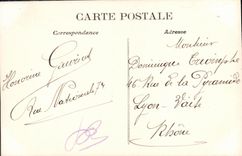 CARTE POSTALE
Correspondance
Adresse
Honorine
Rue Nationale 74
Monsieur
Dominique
46 Rue de la Pyramide
Lyon-Vaise
Rhône